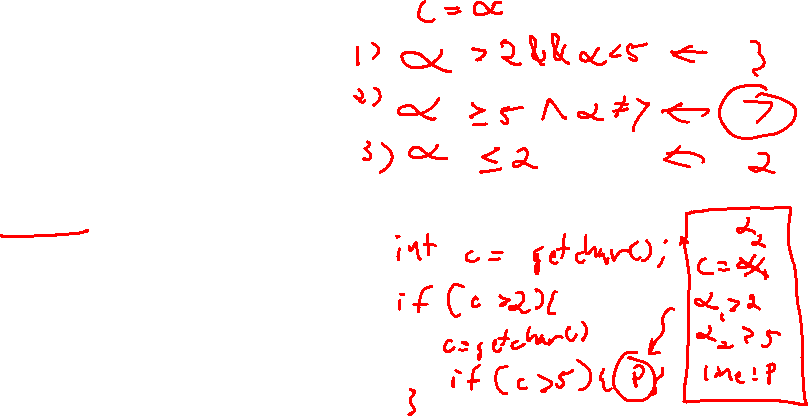 c = α
1) α > 2 && α < 5 ← 3
2) α ≥ 5 ∧ α ≠ 7 ← 7
3) α ≤ 2 ← 2
int c = getchar();
if (c > 2) {
c = getchar()
if (c > 5) { P }
}
α₂
c =
α₁ > 2
α₂ ≥ 5
line: P